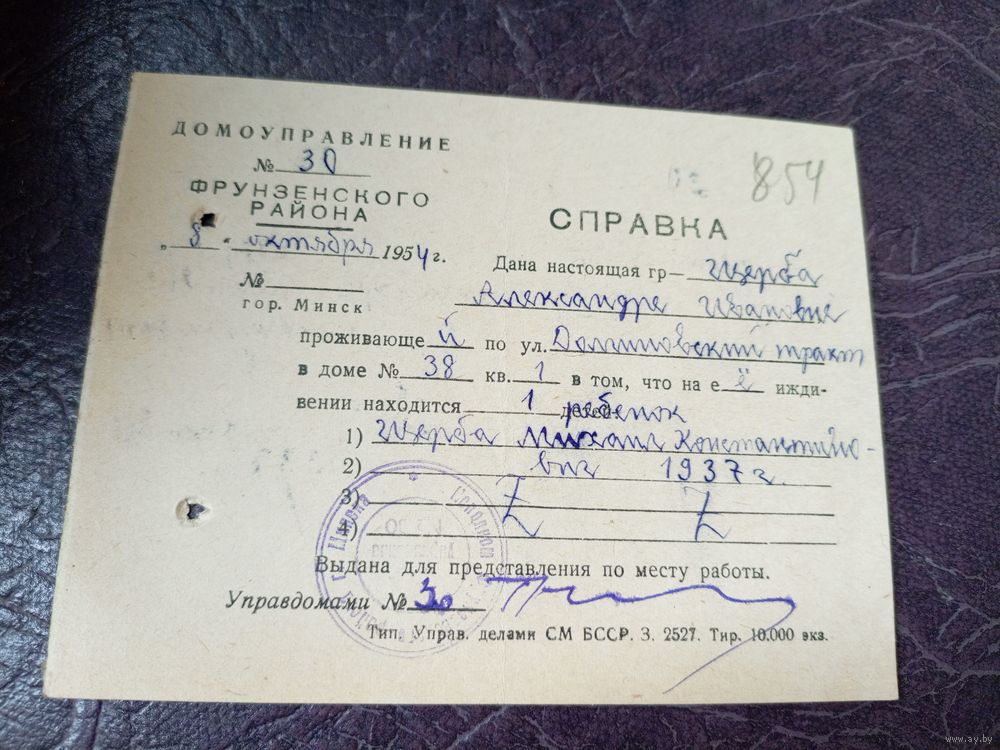 ДОМОУПРАВЛЕНИЕ
№ 30
ФРУНЗЕНСКОГО
РАЙОНА
„ 8 “ октября 1954 г.
№
гор. Минск
854
СПРАВКА
Дана настоящая гр— Щерба
Александре Ивановне
проживающе й по ул. Долгиновский тракт
в доме № 38 кв. 1 в том, что на е ё ижди-
вении находится 1 детей ребенок
1) Щерба Михаил Константино-
2) вич 1937 г.
3) Z Z
4)
Выдана для представления по месту работы.
Управдомами № 30
Тип. Управ. делами СМ БССР. З. 2527. Тир. 10.000 экз.
www.ay.by